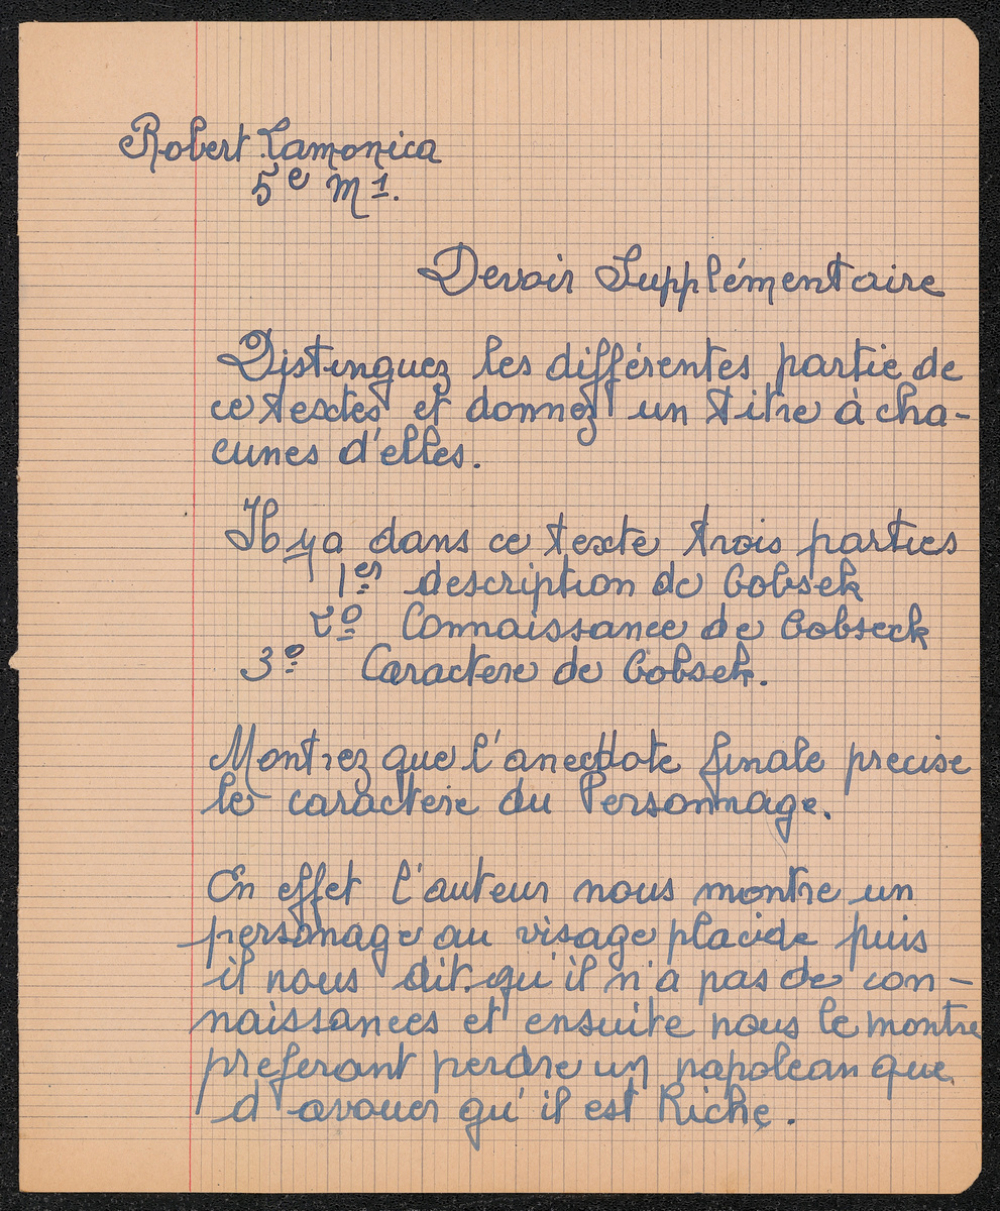 Robert Lamonica
5e M1.
Devoir Supplémentaire
Distinguez les différentes partie de
ce textes et donnez un titre à cha-
cunes d'elles.
Il y a dans ce texte trois parties
1er description de Gobsek
2º Connaissance de Gobseck
3º Caractere de Gobsek.
Montrez que l'anecdote finale precise
le caractere du Personnage.
En effet l'auteur nous montre un
personage au visage placide puis
il nous dit qu'il n'a pas de con-
naissances et ensuite nous le montre
preferant perdre un napolean que
d'avouer qu'il est Riche.